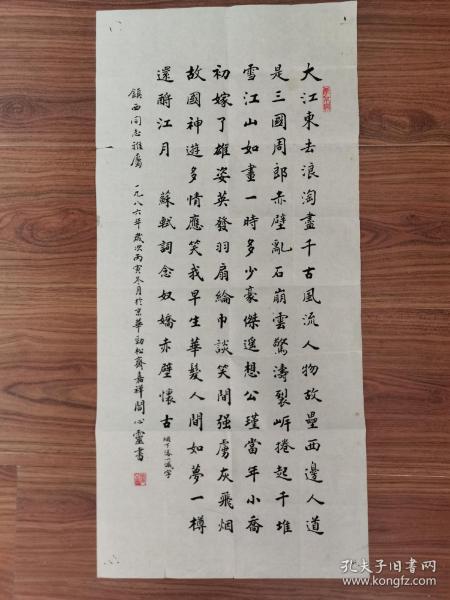 大江東去浪淘盡千古風流人物故壘西邊人道
是三國周郎赤壁亂石崩雲驚濤裂岸捲起千堆
雪江山如畫一時多少豪傑遙想公瑾當年小喬
初嫁了雄姿英發羽扇綸巾談笑間强虜灰飛烟
故國神遊多情應笑我早生華髮人間如夢一樽
還酹江月 蘇軾詞念奴嬌赤壁懷古
烟下落一滅字
鎮西同志雅屬 一九八六年歲次丙寅冬月於京華勁松齋嘉祥閻心靈書
孔夫子旧书网
www.kongfz.com